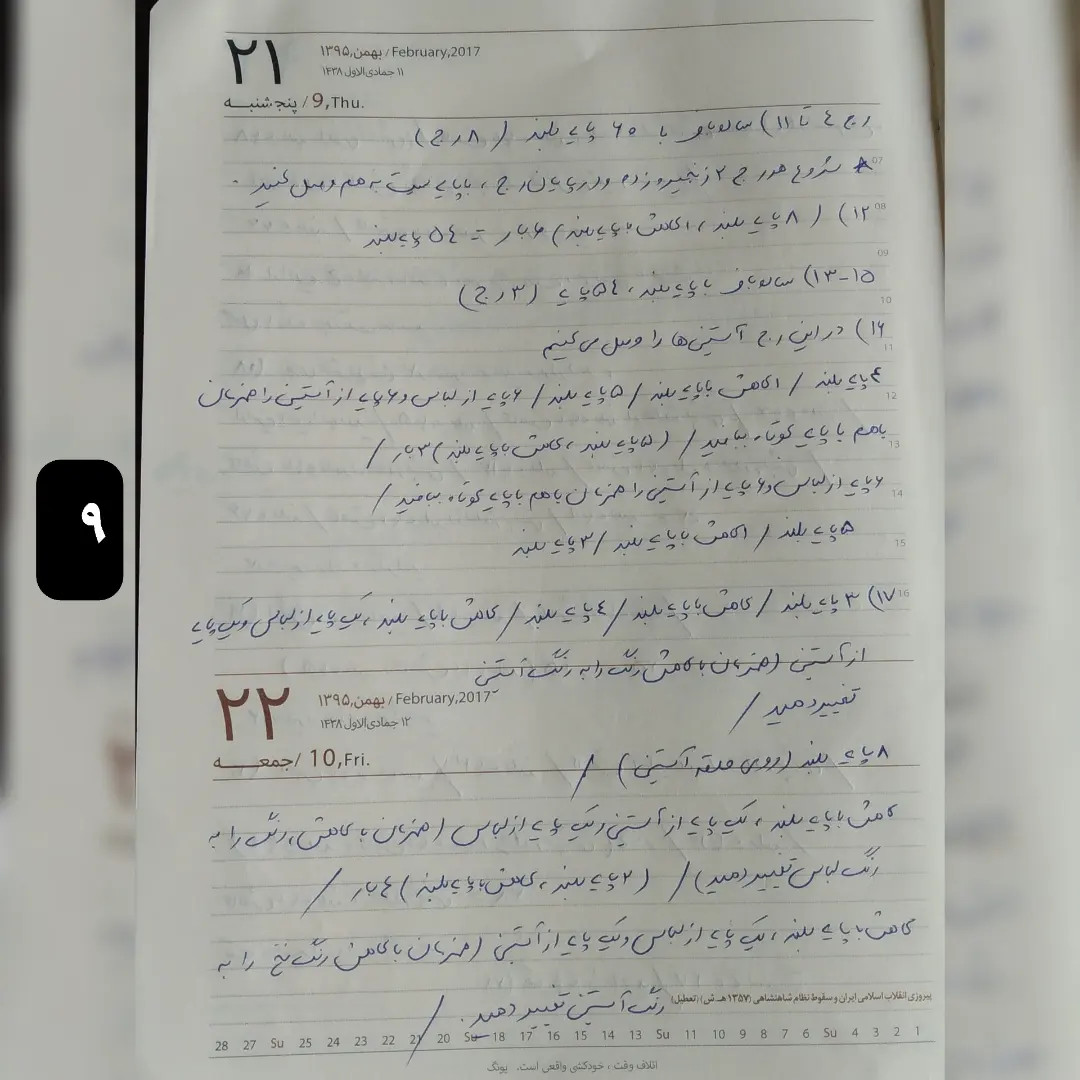 ۲۱
بهمن,۱۳۹۵ / February,2017
۱۱ جمادی‌الاول ۱۴۳۸
پنجشنبه / 9,Thu.
رج ٤ تا ۱۱) ساده‌باف با ۶۰ پایه بلند (۸ رج)
07
* شروع هر رج ۲ زنجیره زده و در پایان رج ، با پایه به هم وصل کنید .
08
۱۲) (۸ پایه بلند ، ۱ کاهش با پایه بلند) ۶ بار = ٥٤ پایه بلند
09
۱۳-۱۵) ساده‌باف با پایه بلند ، ٥٤ پایه (۳ رج)
10
۱۶) در این رج آستین‌ها را وصل می‌کنیم
11
۴ پایه بلند / ۱ کاهش با پایه بلند / ۵ پایه بلند / ۶ پایه از لباس و ۶ پایه از آستین را همزمان
12
باهم با پایه کوتاه ببافید / (۵ پایه بلند ، کاهش با پایه بلند) ۳ بار /
13
۶ پایه از لباس و ۶ پایه از آستین را همزمان باهم با پایه کوتاه ببافید /
14
۵ پایه بلند / ۱ کاهش با پایه بلند / ۳ پایه بلند
15
۱۷) ۳ پایه بلند / کاهش با پایه بلند / ٤ پایه بلند / کاهش با پایه بلند ، یک پایه از لباس و یک پایه
16
از آستین (همزمان با کاهش رنگ را به رنگ آستین
تغییر دهید /
۲۲
بهمن,۱۳۹۵ / February,2017
۱۲ جمادی‌الاول ۱۴۳۸
جمعه / 10,Fri.
۸ پایه بلند (روی حلقه آستین) /
کاهش با پایه بلند ، یک پایه از آستین و یک پایه از لباس (همزمان با کاهش، رنگ را به
رنگ لباس تغییر دهید) / (۲ پایه بلند ، کاهش با پایه بلند) ٤ بار /
کاهش با پایه بلند ، یک پایه از لباس و یک پایه از آستین (همزمان با کاهش رنگ نخ را به
رنگ آستین تغییر دهید . /
پیروزی انقلاب اسلامی ایران و سقوط نظام شاهنشاهی (۱۳۵۷ هـ ش) (تعطیل)
28 27 Su 25 24 23 22 21 20 Su 18 17 16 15 14 13 Su 11 10 9 8 7 6 Su 4 3 2 1
اتلاف وقت ، خودکشی واقعی است. یونگ
۹